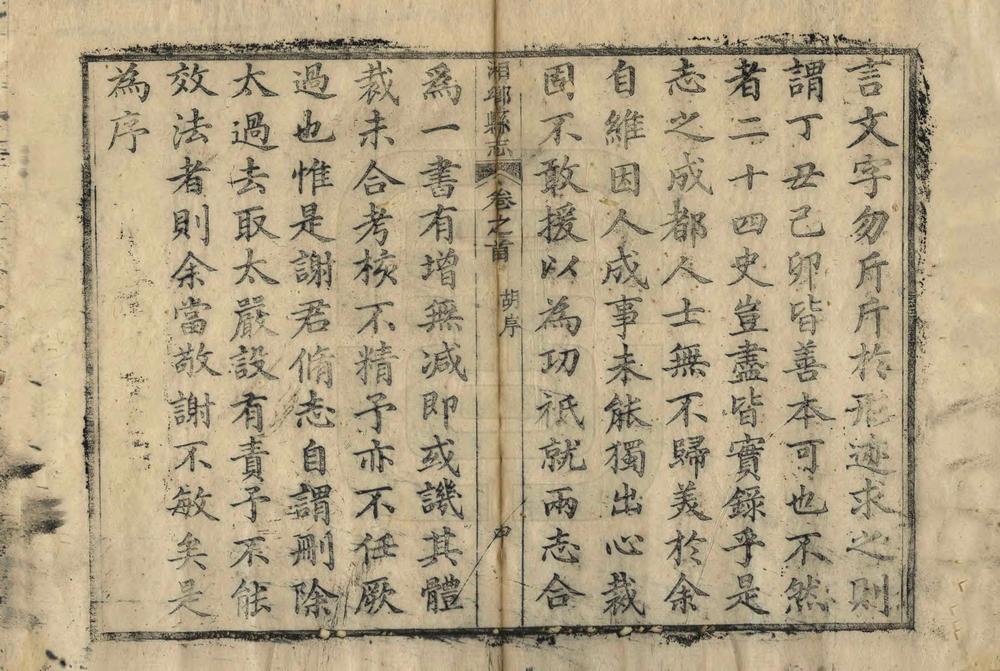 言文字勿斤斤於形迹求之則
謂丁丑己卯皆善本可也不然
者二十四史豈盡皆實錄乎是
志之成都人士無不歸美於余
自維因人成事未能獨出心裁
固不敢援以為功祇就兩志合
湘鄉縣志 卷之首 胡序
為一書有增無減即或譏其體
裁未合考核不精予亦不任厥
過也惟是謝君脩志自謂刪除
太過去取太嚴設有責予不能
效法者則余當敬謝不敏矣是
為序